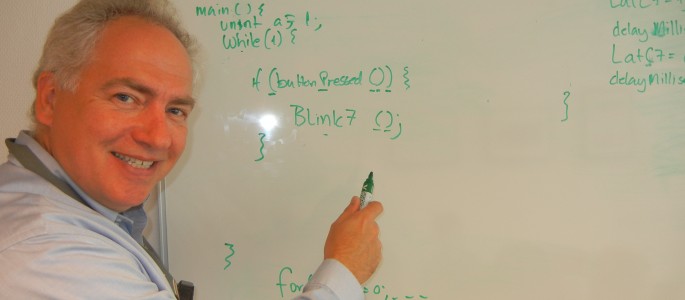 main () {
while (1) {
if (button Pressed ()) {
BLink7 ();
}
}
for
=0;
}
delay Milli
LatC7=
delay Millis